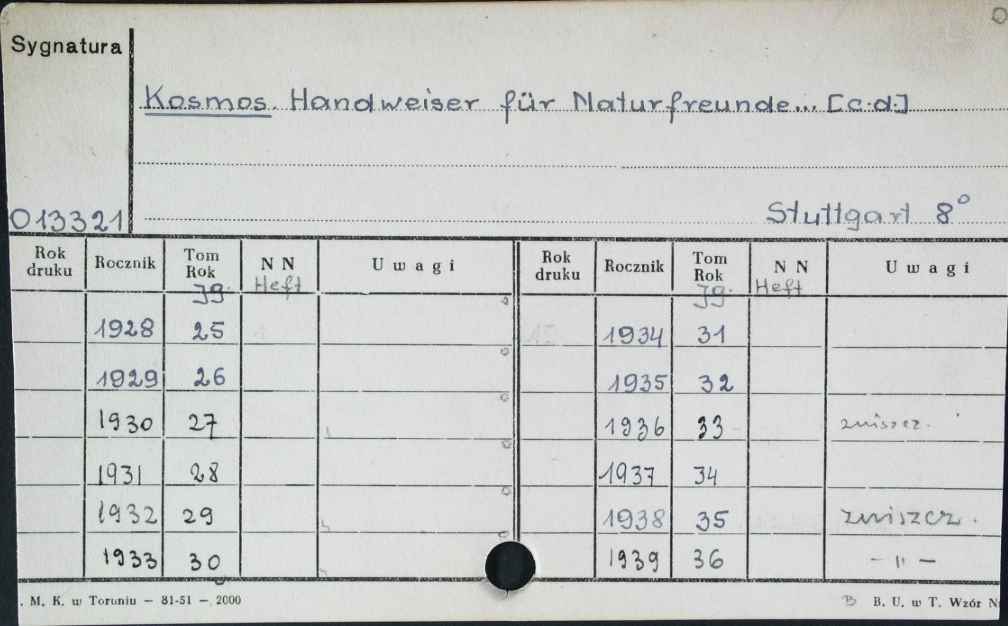 Sygnatura
Kosmos. Handweiser für Naturfreunde... [c.d.]
013321
Stuttgart 8°
Rok druku Rocznik Tom Rok N N Uwagi Rok druku Rocznik Tom Rok N N Uwagi
Jg. Heft Jg. Heft
1928 25 1934 31
1929 26 1935 32
1930 27 1936 33 zniszcz.
1931 28 1937 34
1932 29 1938 35 zniszcz.
1933 30 1939 36 - " -
. M. K. w Toruniu — 81-51 — 2000 B. U. w T. Wzór N